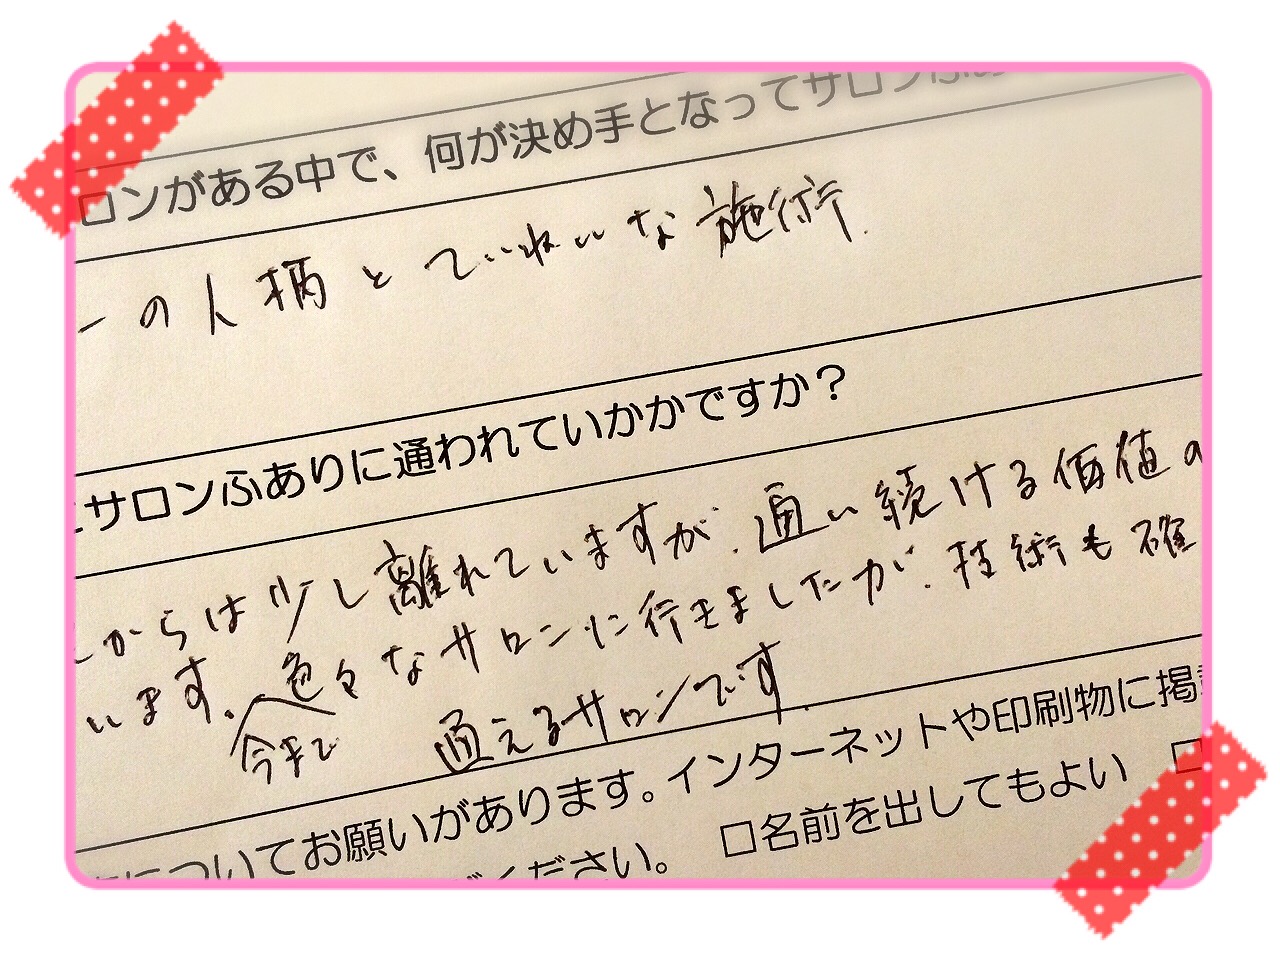 ロンがある中で、何が決め手となってサロンふあ
ーの人柄とていねいな施術.
サロンふありに通われていかかですか？
からは少し離れていますが、通い続ける価値の
います。今まで色々なサロンに行きましたが、技術も確
通えるサロンです.
についてお願いがあります。インターネットや印刷物に掲
ください。 □名前を出してもよい □